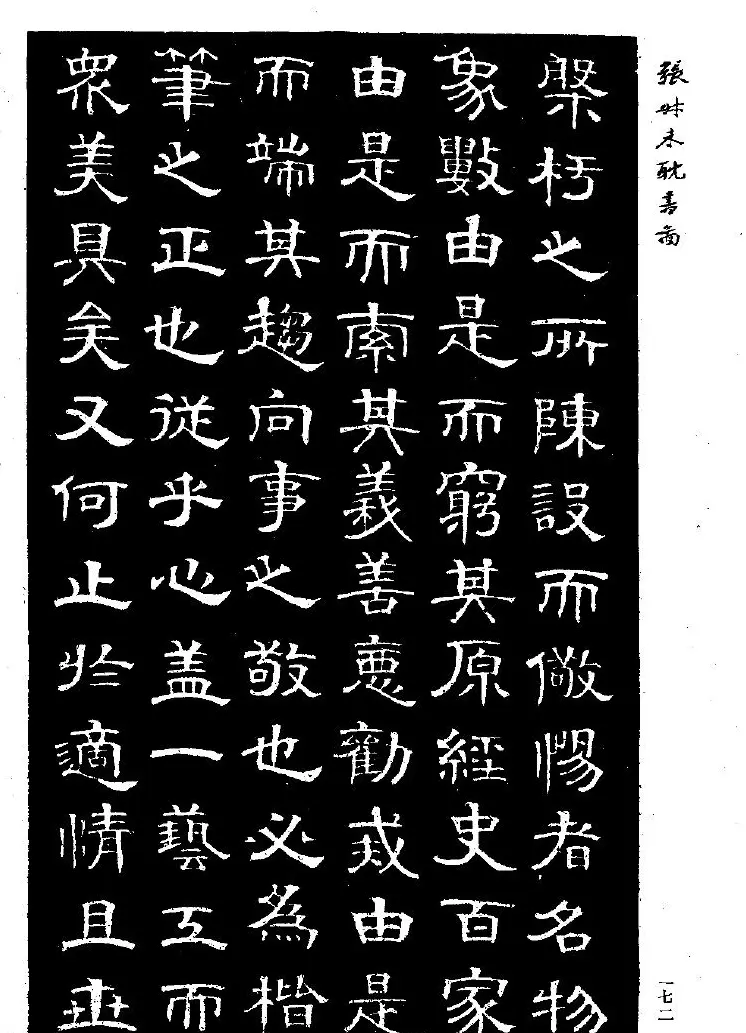 張尗未耽書啚
槃杅之所陳設而儆惕者名物
象數由是而窮其原經史百家
由是而索其義善惡勸戒由是
而端其趨向事之敬也必為楷
筆之正也從乎心盖一藝工而
衆美具矣又何止於適情且
一七二